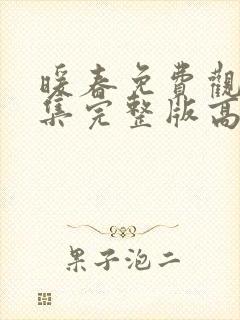 暖春免費觀
集完整版高
果子泡二